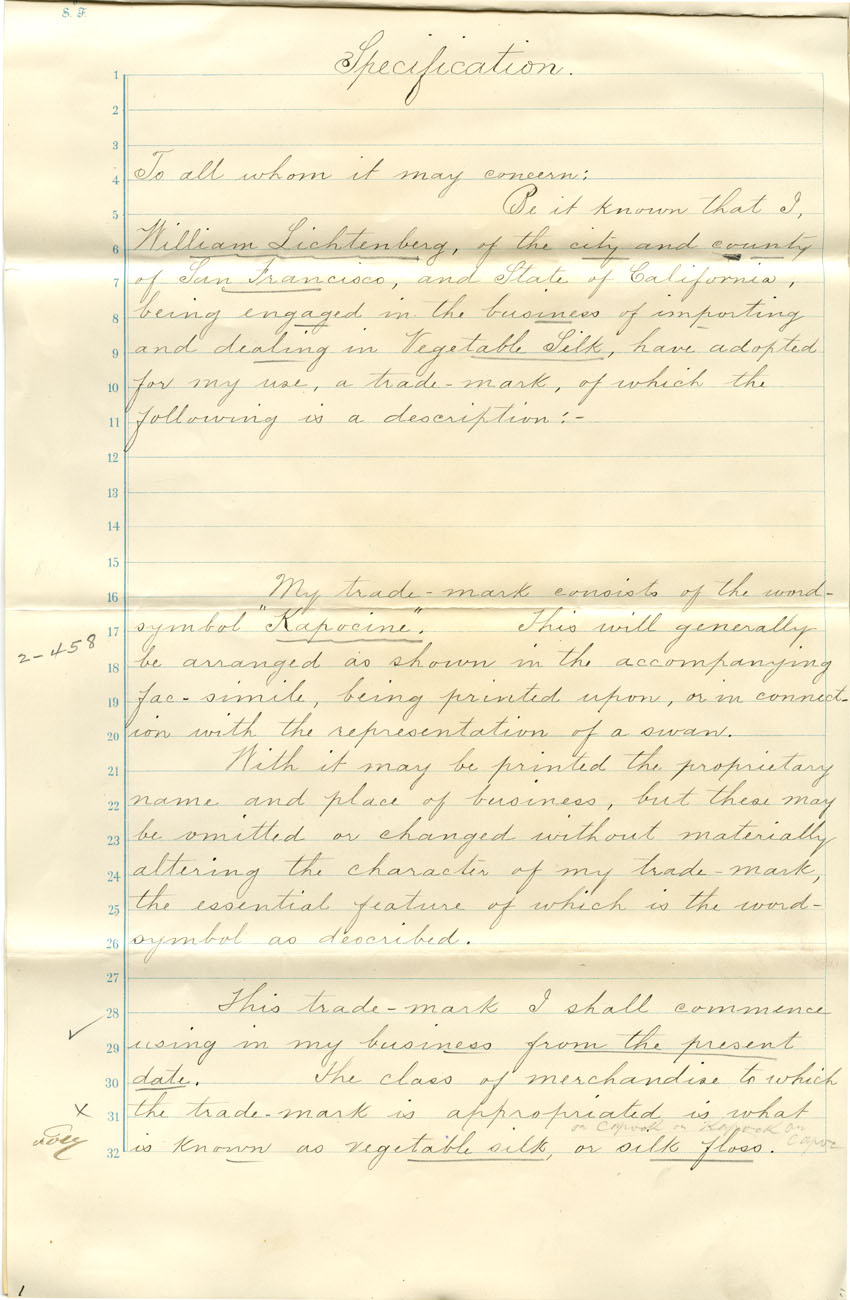 S. F.
Specification.
1
2
3
4 To all whom it may concern:
5 Be it known that I,
6 William Lichtenberg, of the city and county
7 of San Francisco, and State of California,
8 being engaged in the business of importing
9 and dealing in Vegetable Silk, have adopted
10 for my use, a trade-mark, of which the
11 following is a description:-
12
13
14
15
16 My trade-mark consists of the word-
17 symbol "Kapocine". This will generally
2-458
18 be arranged as shown in the accompanying
19 fac-simile, being printed upon, or in connect-
20 ion with the representation of a swan.
21 With it may be printed the proprietary
22 name and place of business, but these may
23 be omitted or changed without materially
24 altering the character of my trade-mark,
25 the essential feature of which is the word-
26 symbol as described.
27
28 This trade-mark I shall commence
29 using in my business from the present
30 date. The class of merchandise to which
31 the trade-mark is appropriated is what
or Capock or Kapock or
32 is known as vegetable silk, or silk floss.
1